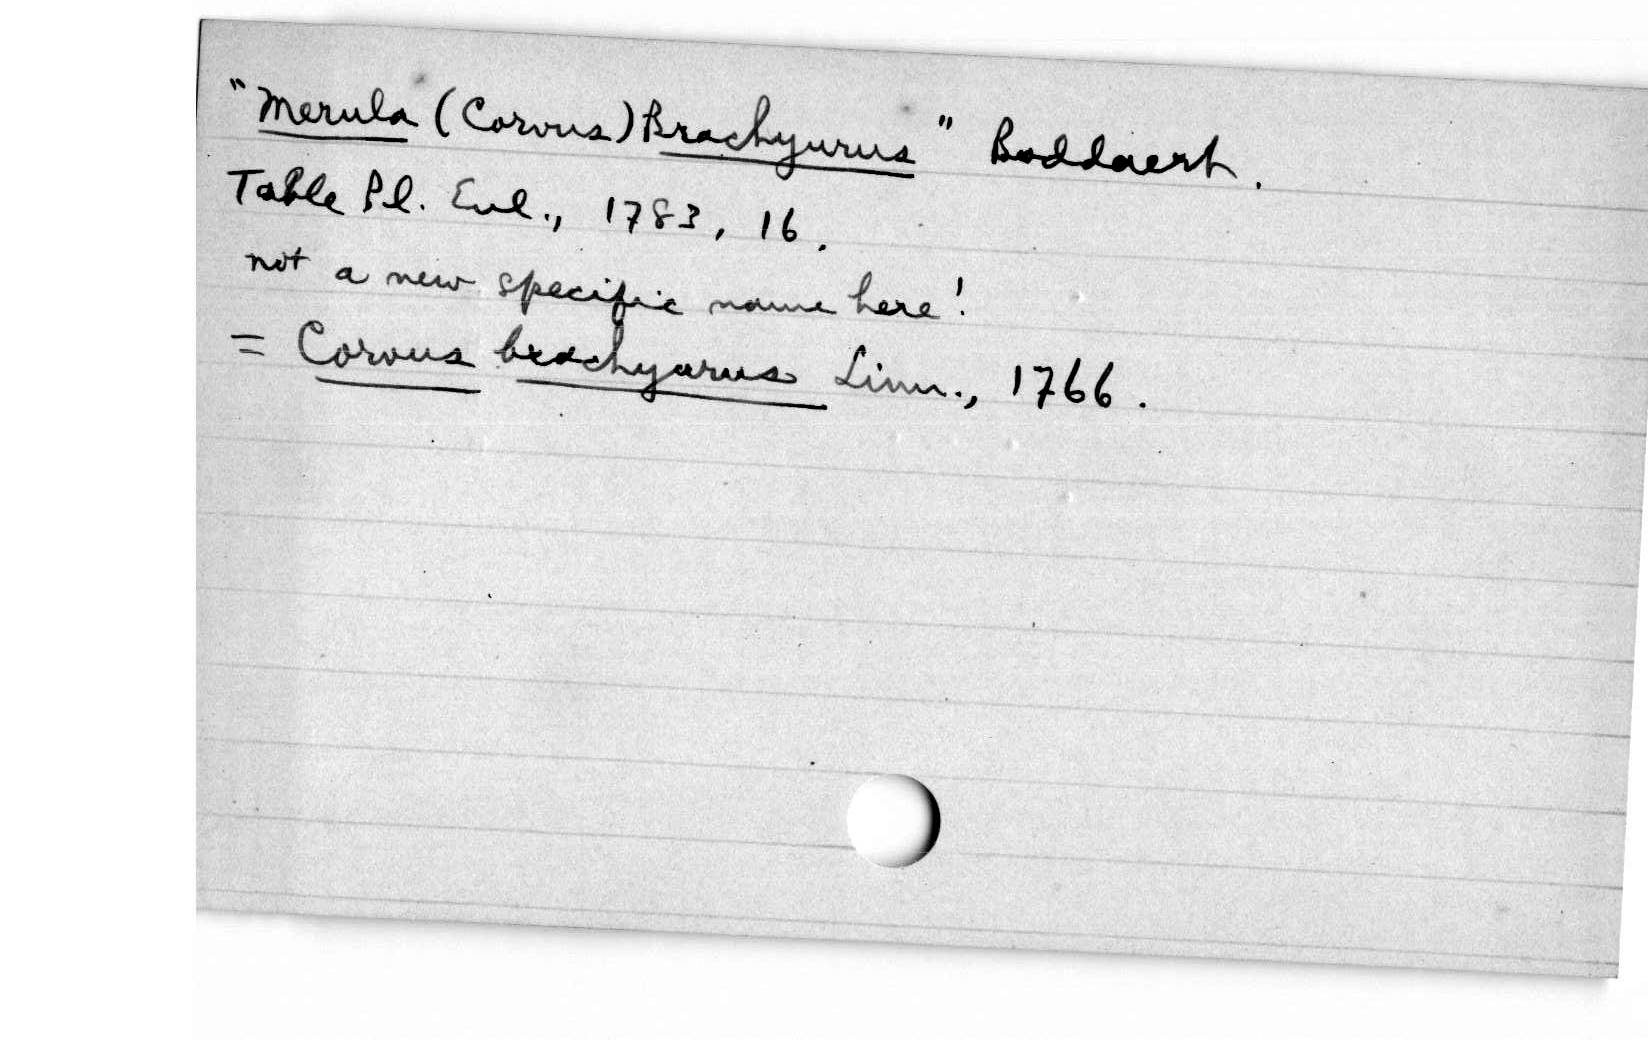 "Merula (Corvus) Brachyurus" Boddaert.
Table Pl. Enl., 1783, 16.
not a new specific name here!
= Corvus brachyurus Linn., 1766.